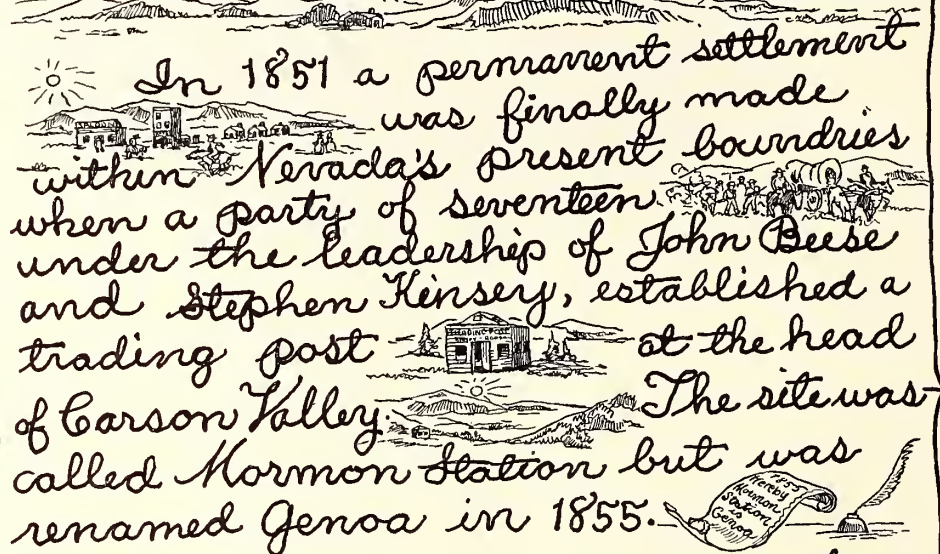 In 1851 a permanent settlement
was finally made
within Nevada's present boundries
when a party of seventeen
under the leadership of John Beese
and Stephen Kinsey, established a
trading post at the head
of Carson Valley. The site was
called Mormon Station but was
renamed Genoa in 1855.
SALOON
TRADING POST
1855
Hereby
Mormon
Station
is
Genoa